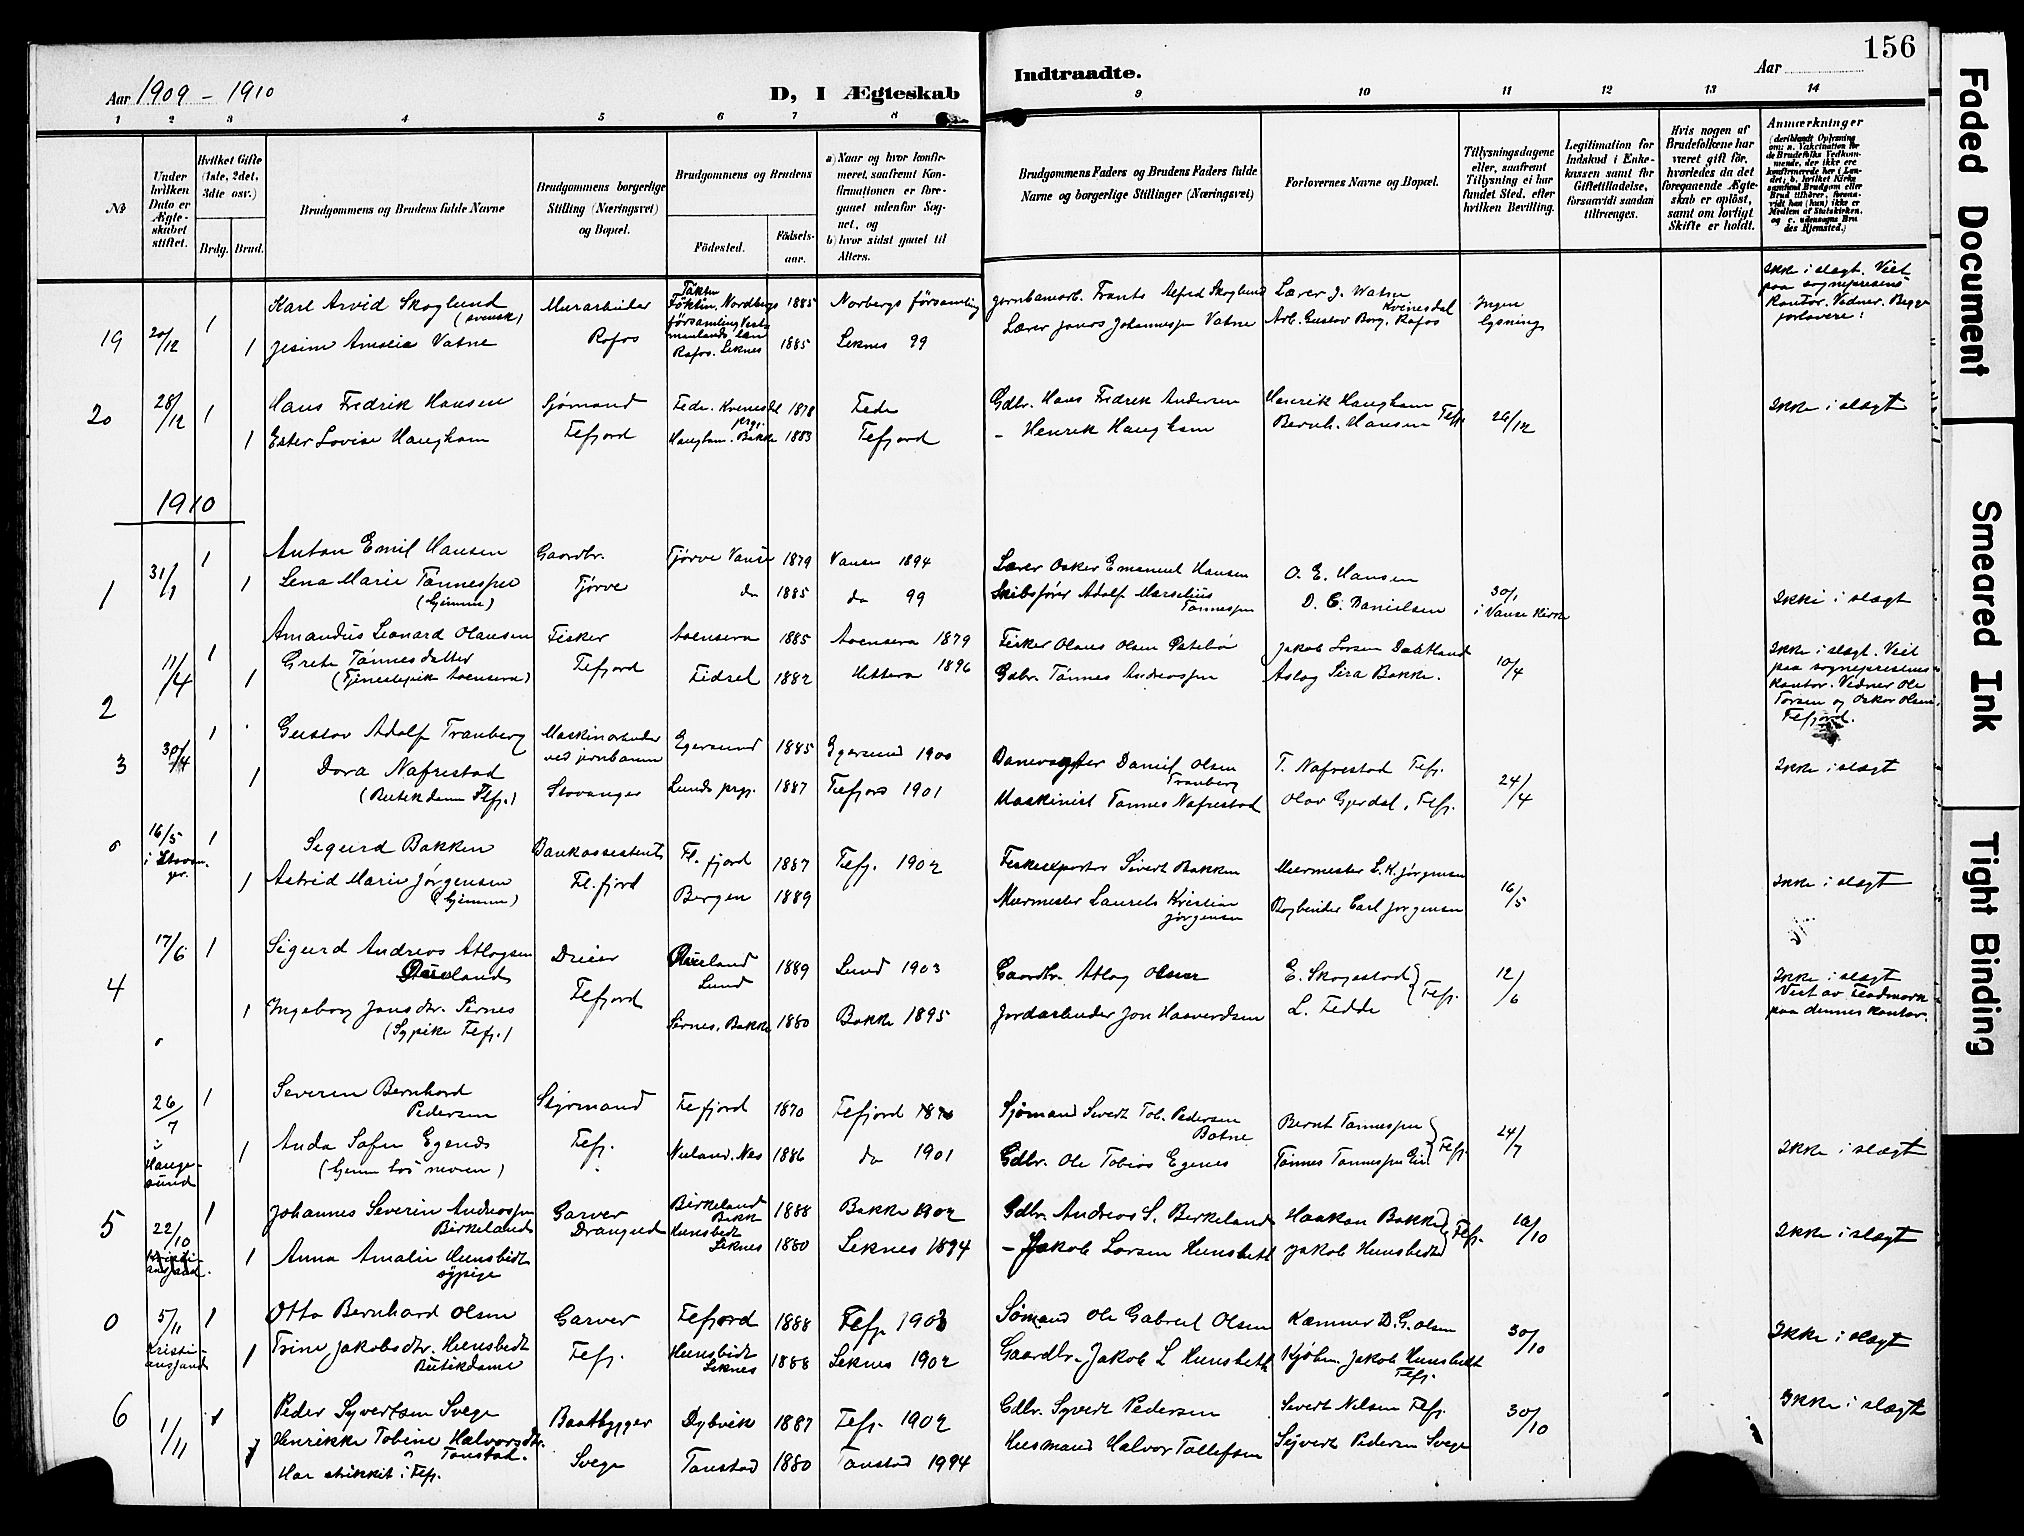 156
Aar 1909 - 1910
D, I Ægteskab
Indtraadte.
Aar
1 2 3 4 5 6 7 8 9 10 11 12 13 14
No
Under hvilken Dato er Ægteskabet stiftet.
Hvilket Gifte (1ste, 2det, 3die osv.)
Brdg. Brud.
Brudgommens og Brudens fulde Navne
Brudgommens borgerlige Stilling (Næringsvei) og Bopæl.
Brudgommens og Brudens
Födested.
Födselsaar.
a) Naar og hvor konfirmeret, saafremt Konfirmationen er foregaaet udenfor Sognet, og
b) hvor sidst gaaet til Alters.
Brudgommens Faders og Brudens Faders fulde Navne og borgerlige Stillinger (Næringsvei)
Forlovernes Navne og Bopæl.
Tillysningsdagene eller, saafremt Tillysning ei har fundet Sted, efter hvilken Bevilling.
Legitimation for Indskud i Enkekassen samt for Giftetilladelse, forsaavidt saadan tiltrænges.
Hvis nogen af Brudefolkene har været gift før, hvorledes da det foregaaende Ægteskab er oplöst, samt om lovligt Skifte er holdt.
Anmærkninger
19 20/12 1 Karl Arvid Skoglund (svensk) Murarbeider Rafos Nordbergs församling 1885 Norbergs församling Jernbanearb. Frants Alfred Skoglund Lærer J. Vatne Kvinesdal Ingen lysning
Ikke i slægt. Viet paa sogneprestens kontor. Vidner: Begge forlovere.
1 Jesine Amalia Vatne Rafos. Leknes 1885 Leknes 99 Lærer Johannesen Vatne Arb. Gustav Borg, Rafos
20 28/12 1 Hans Fredrik Hansen Sjømand Fede. Kvinesdal prgj. 1878 Fede Gdbr. Hans Fredrik Andersen Henrik Haugham 26/12 Ikke i slægt
1 Ester Lovise Haugham Fefjord Haugham. Bakke 1883 Fefjord - Henrik Haugham Bernh. Hansen Fefj.
1910
1 31/1 1 Anton Emil Hansen Gaardbr. Tjørve Vanse 1879 Vanse 1894 Lærer Oskar Emanuel Hansen O. E. Hansen 30/1 i Vanse Kirke Ikke i slægt
1 Lena Marie Tønnessen (hjemme) Tjørve do 1885 do 99 Skibsfører Adolf Marselius Tønnessen D. C. Danielsen
2 11/4 1 Amandus Leonard Olausen Fisker Aaensera 1885 Aaensera 1879 Fisker Olaus Olsen 10/4
Ikke i slægt. Viet paa sogneprestens kontor. Vidner Ole Torsen og Oskar Olsen, Fefjord.
1 Grete Tønnesdatter (Tjenestepike Aaensera) Fefjord Fidsel 1882 Hittera 1896 Gdbr. Tønnes Andreassen Aslag Sira Bakke.
3 30/4 1 Gustav Adolf Tranberg Maskinarbeider ved jernbanen Egersund 1885 Egersund 1900 Banevogter Daniel Olsen Tranberg T. Nafrestad Fefj. 24/4 Ikke i slægt
1 Dora Nafrestad (Butikdame Flefj.) Stavanger Lunds prgj. 1887 Flefjord 1901 Maskinist Tønnes Nafrestad Olav Gjerdal, Flefj.
0 16/5 i Stavanger. 1 Sigurd Bakken Bankassistent Fl. fjord 1887 Flefj. 1902 Fiskeexportør Sivert Bakken Murmester L. K. Jørgensen 16/5 Ikke i slægt
1 Astrid Marie Jørgensen (hjemme) Fl. fjord Bergen 1889 Murmester Laurits Kristian Jørgensen Bogbinder Carl Jørgensen
4 17/6 1 Sigurd Andreas Atlagsen Dreier Lund 1889 Lund 1903 Gaardbr. Atlag Olsen E. Skogestad 12/6
Ikke i slægt Viet av Fladmark paa dennes kontor.
1 Ingeborg Jonsdtr. Sirnes (Sypike Fefj.) Flefjord Sirnes. Bakke 1880 Bakke 1895 Jordarbeider Jon Haaverdsen L. Fedde Flefj.
0
26/7 i Haugesund 1 Severin Bernhard Pedersen Styrmand Flefjord 1870 Flefjord Sjømand Sivert Tob. Pedersen Batne Bernt Tønnessen 24/7 Ikke i slægt
1 Anda Sofie Egenes (hjemme hos moren) Flefj. Nuland. Nes 1886 do 1901 Gdbr. Ole Tobias Egenes Tønnes Tønnessen Flefj.
5 22/10 Kristiansand. 1 Johannes Severin Andreassen Birkeland Garver Drangeid Birkeland Bakke 1888 Bakke 1902 Gdbr. Andreas S. Birkeland Haakon Bakke Flefj. 16/10 Ikke i slægt
1 Anna Amalie Hunsbedt sypige Hunsbedt Leknes 1880 Leknes 1894 - Jakob Larsen Hunsbett Jakob Hunsbedt
0 5/11 Kristiansand 1 Otto Bernhard Olsen Garver Flefjord 1888 Flefj. 1903 Sømand Ole Gabriel Olsen Kæmner D. G. Olsen 30/10 Ikke i slægt
1 Trine Jakobsdtr. Hunsbedt Butikdame Flefj. Hunsbedt Leknes 1888 Leknes 1902 Gaardbr. Jakob L Hunsbett Kjøbm. Jakob Hunsbedt Flefj.
6 1/11 1 Peder Syvertsen Svege Baatbygger Dybvik 1887 Flefj. 1902 Gdbr. Syvert Pedersen Sivert Nilsen Flefj. 30/10 Ikke i slægt
1 Henrikke Tobine Halvorsdtr. Tonstad. Svege Tonstad 1880 Tonstad 1994 Husmand Halvor Tollefsen Syvert Pedersen Svege
Har strikket i Flefj.
Faded Document
Smeared Ink
Tight Binding